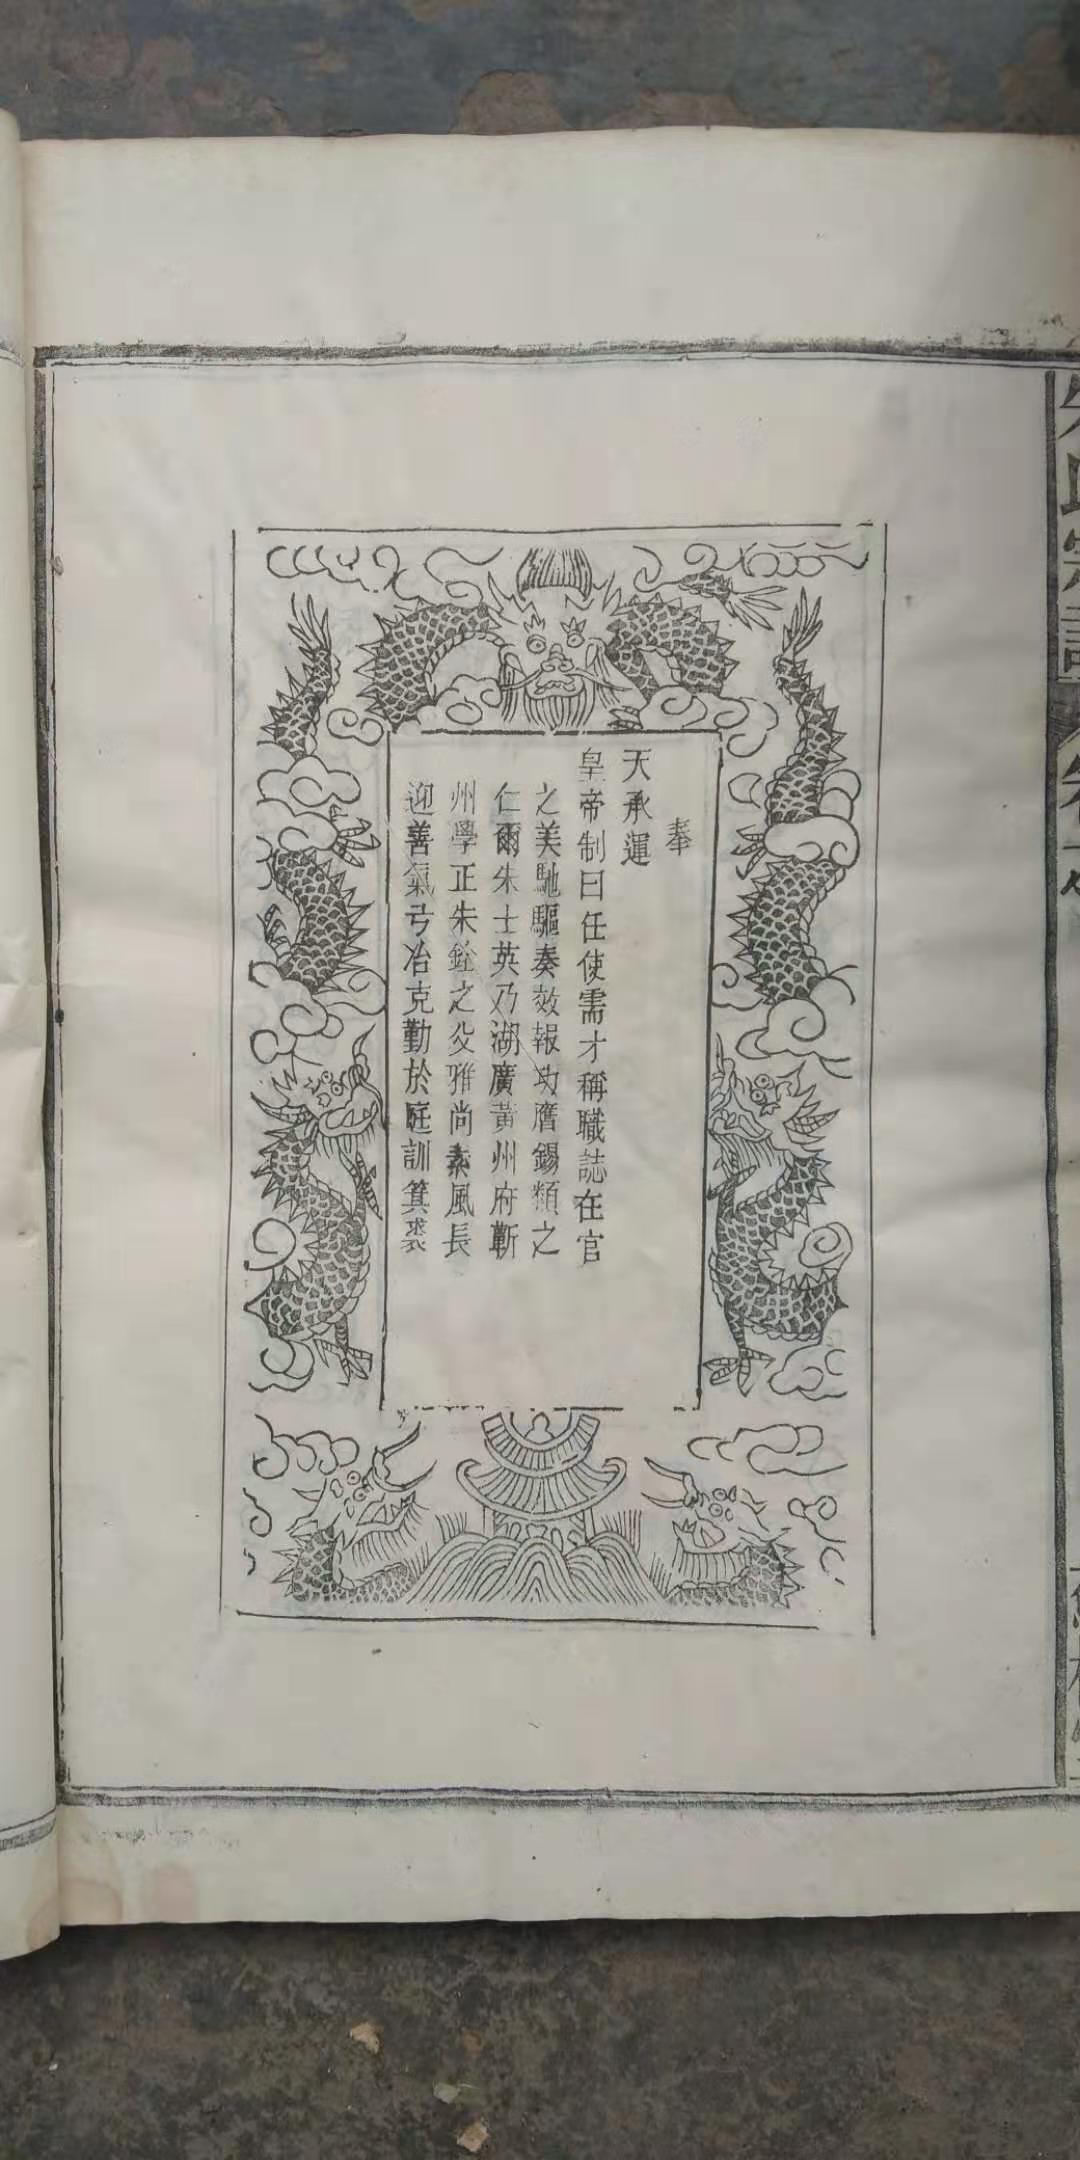 朱氏宗譜
卷
奉
天承運
皇帝制曰任使需才稱職誌在官
之美馳驅奏效報功膺錫類之
仁爾朱士英乃湖廣黃州府蘄
州學正朱銓之父雅尚素風長
迎善氣弓冶克勤於庭訓箕裘